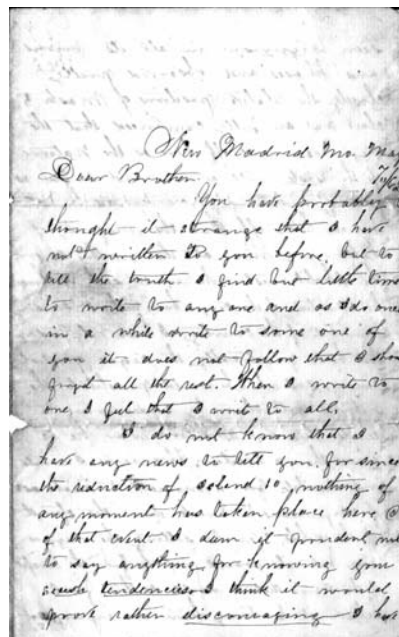 New Madrid Mo. May
Dear Brother
You have probably
thought it strange that I have
not written to you before, but to
tell the truth I find but little time
to write to any one and as I do once
in a while write to some one of
you it does not follow that I shou
forget all the rest. When I write to
one I feel that I write to all.
I do not know that I
have any news to tell you, for since
the reduction of Island 10, nothing of
any moment has taken place here &
of that event I deem it prudent not
to say anything for knowing your
secesh tendencies I think it would
prove rather discouraging I have